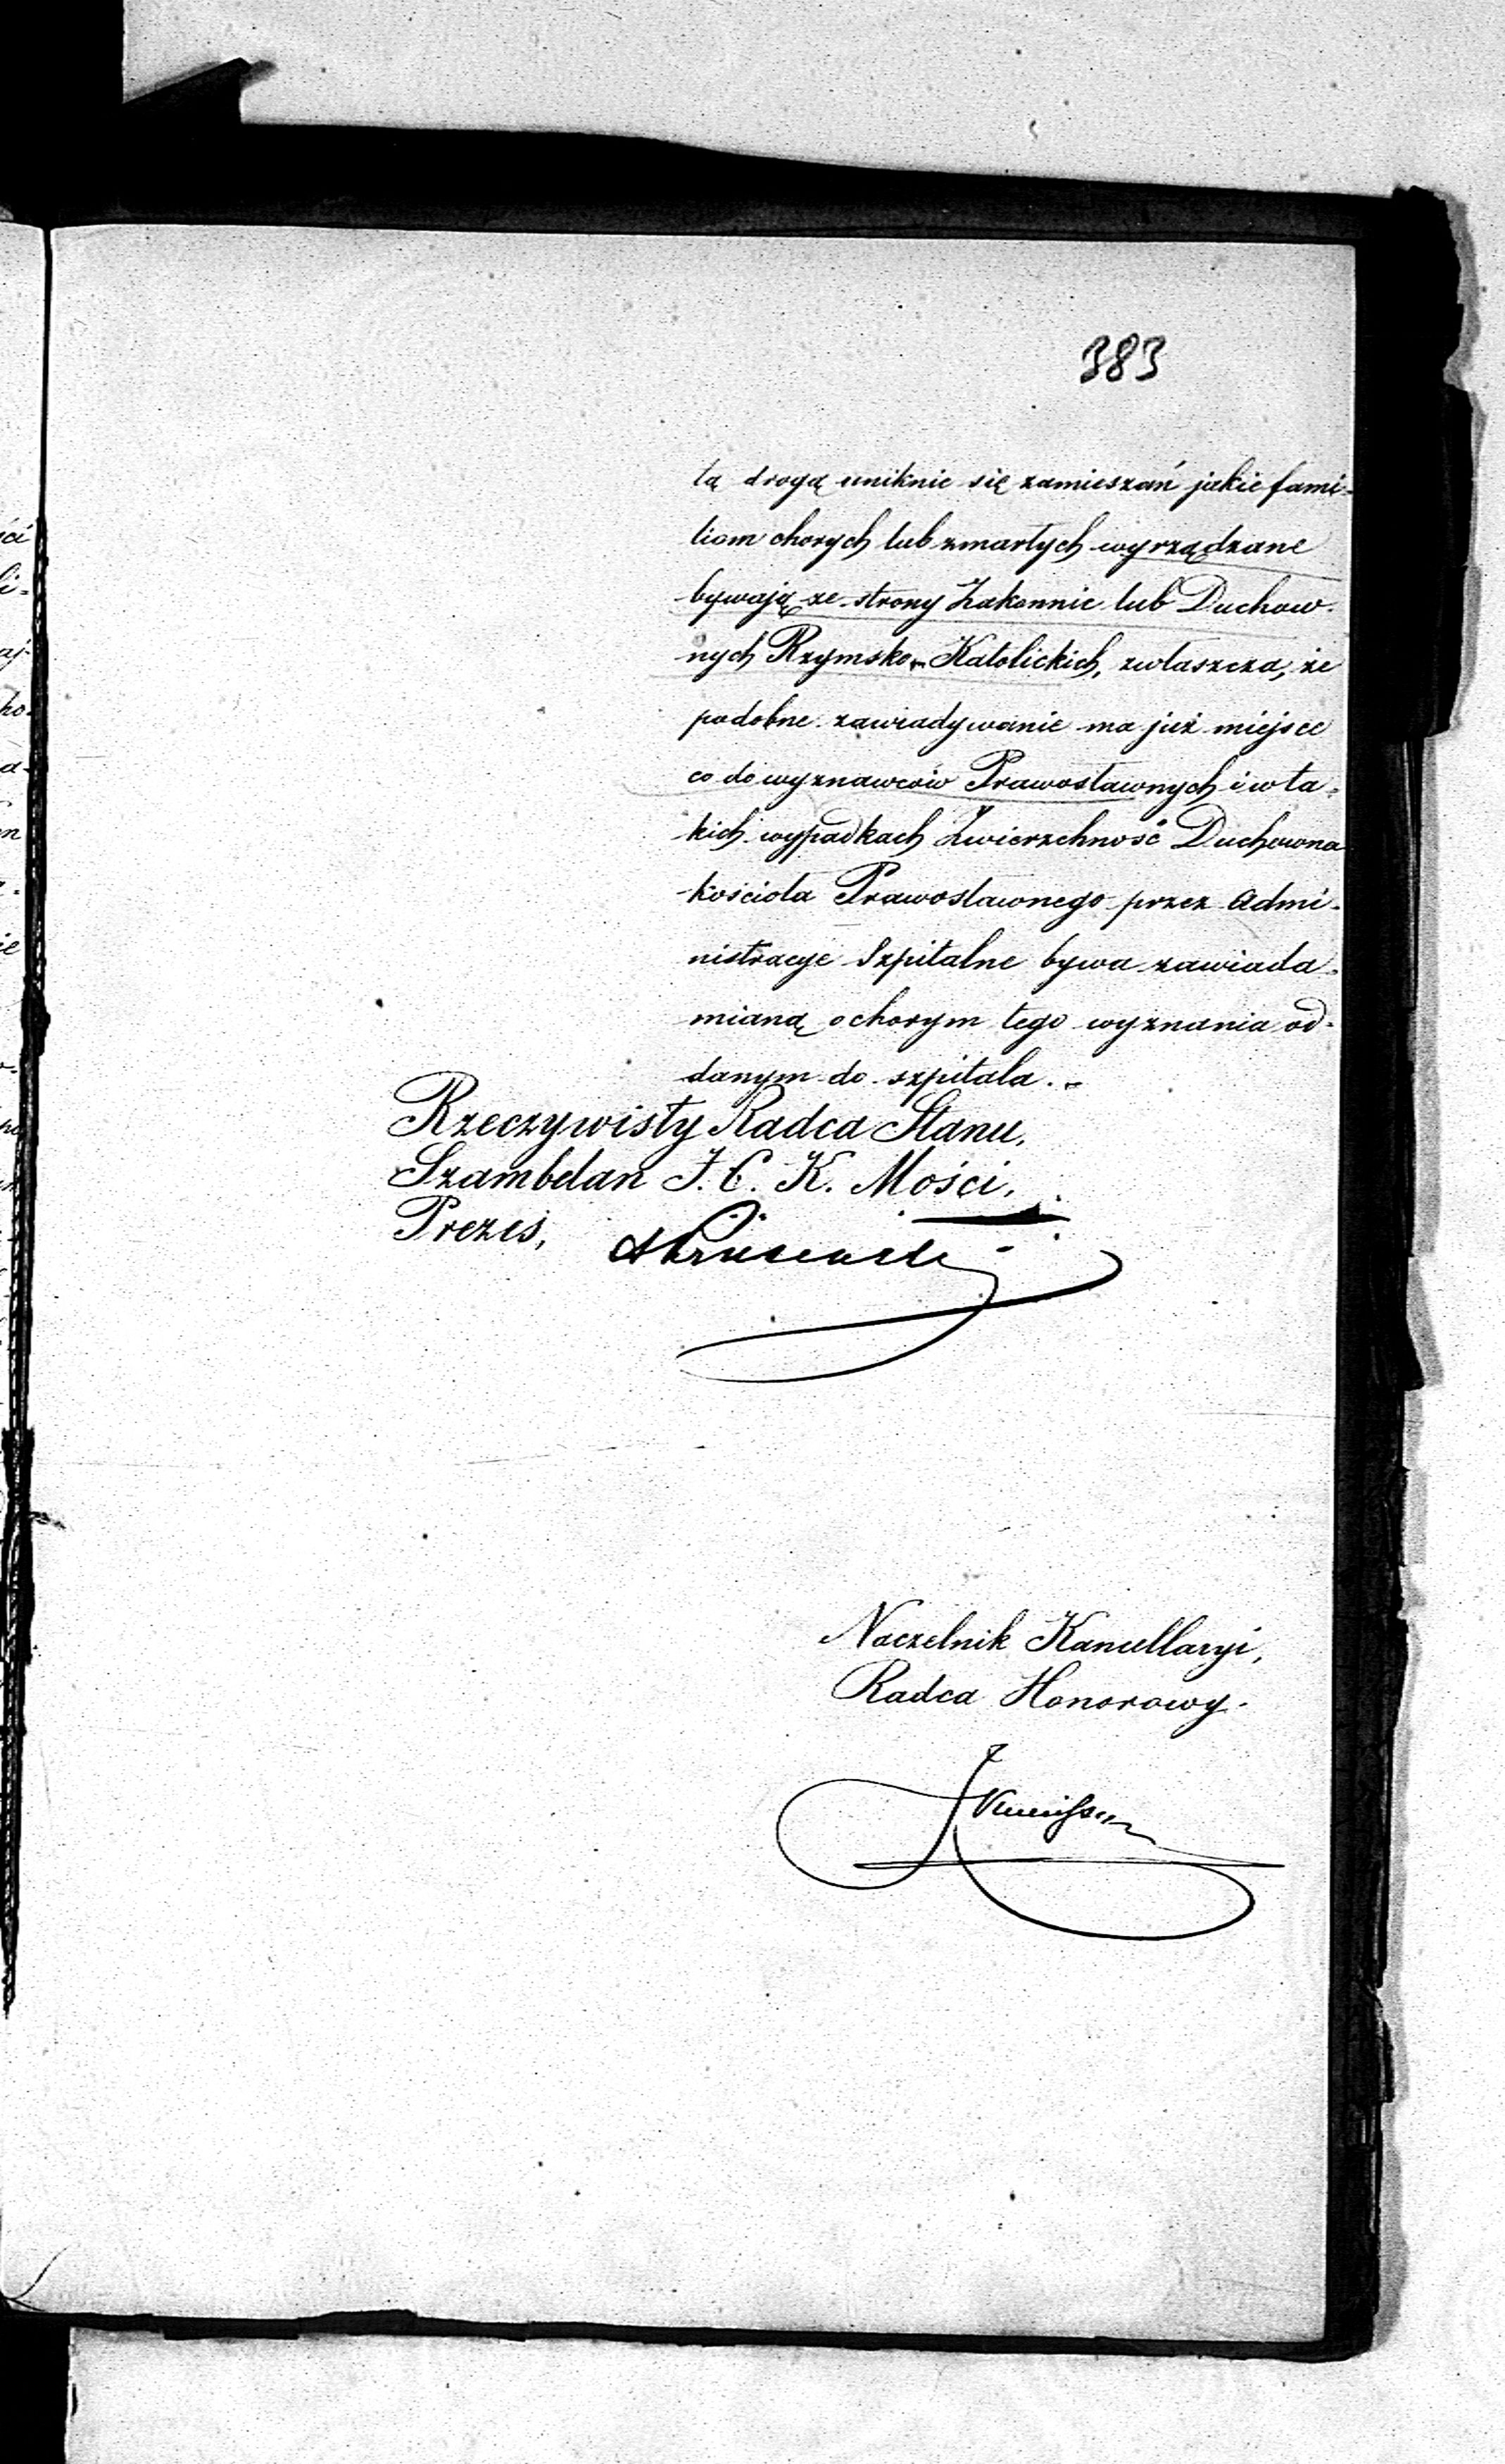 383
tą drogą uniknie się zamieszań jakie fami-
liom chorych lub zmarłych wyrządzane
bywają ze strony Zakonnic lub Duchow-
nych Rzymsko-Katolickich, zwłaszcza, że
podobne zawiadywanie ma już miejsce
co do wyznawców Prawosławnych i w ta-
kich wypadkach Zwierzchność Duchowna
kościoła Prawosławnego przez Admi-
nistracye Szpitalne bywa zawiada-
mianą o chorym tego wyznania od-
danym do szpitala.
Rzeczywisty Radca Stanu,
Szambelan J. C. K. Mości,
Prezes,
Naczelnik Kancellaryi,
Radca Honorowy.